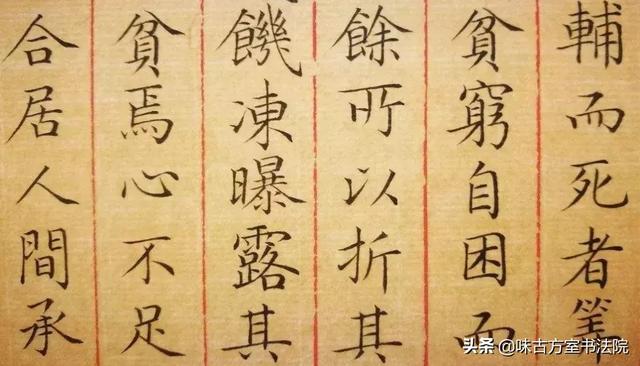 輔而死者
貧窮自困而
餘所以折其
饑凍曝露其
貧焉心不足
合居人間承
头条 @味古方室书法院